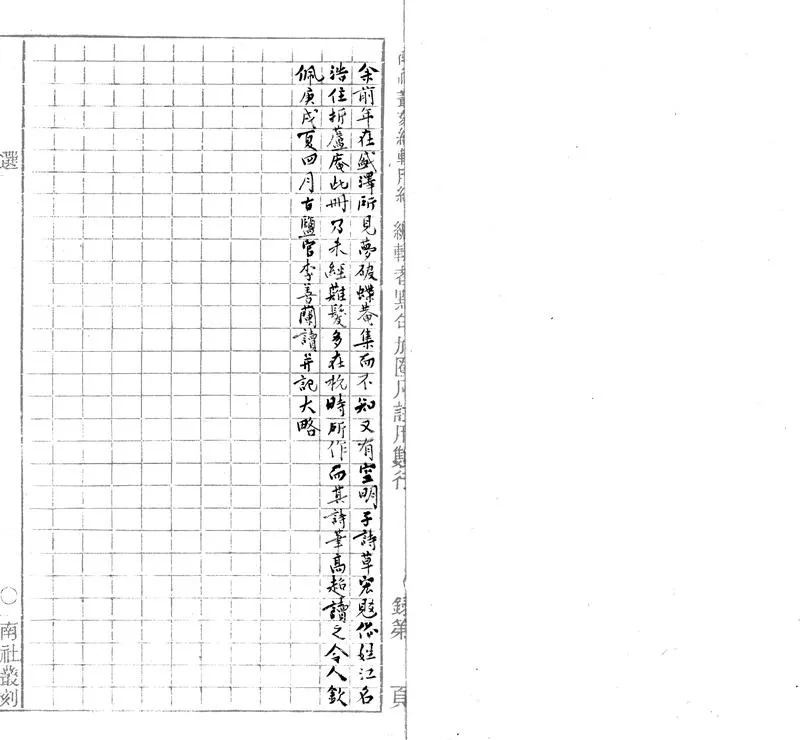 余前年在盛澤所見夢破蝶菴集而不知又有空明子詩草家兄你姓江名
浩住折蘆庵此冊乃未經薙髮多在杭時所作而其詩筆高超讀之令人欽
佩庚戌夏四月古鹽官李善蘭讀并記大略
選
〇南社叢刻
錄第 頁